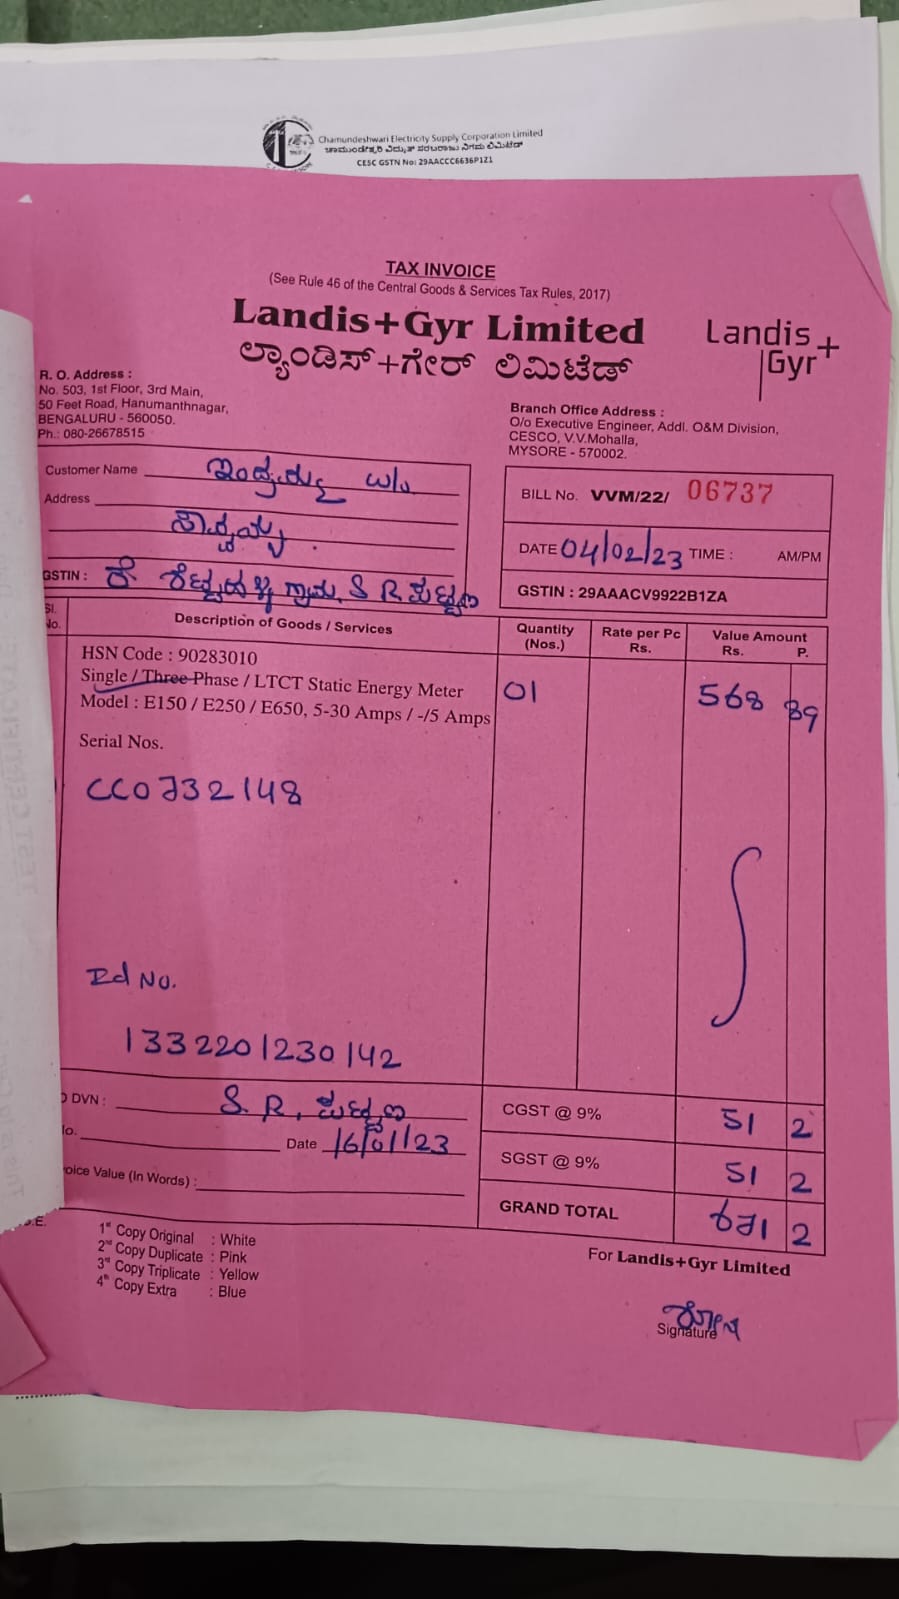 Chamundeshwari Electricity Supply Corporation Limited
ಚಾಮುಂಡೇಶ್ವರಿ ವಿದ್ಯುತ್ ಸರಬರಾಜು ನಿಗಮ ಲಿಮಿಟೆಡ್
CESC GSTN No: 29AACCC6636P1Z1
TAX INVOICE
(See Rule 46 of the Central Goods & Services Tax Rules, 2017)
Landis+Gyr Limited
ಲ್ಯಾಂಡಿಸ್+ಗೇರ್ ಲಿಮಿಟೆಡ್
Landis+
Gyr
R. O. Address :
No. 503, 1st Floor, 3rd Main,
50 Feet Road, Hanumanthnagar,
BENGALURU - 560050.
Ph.: 080-26678515
Branch Office Address :
O/o Executive Engineer, Addl. O&M Division,
CESCO, V.V.Mohalla,
MYSORE - 570002.
Customer Name
Address
GSTIN : ಕೆ ಗ್ರಾಮ S R ಪಟ್ಟಣ
BILL No. VVM/22/ 06737
DATE 04/02/23 TIME : AM/PM
GSTIN : 29AAACV9922B1ZA
Sl. No.
Description of Goods / Services
Quantity (Nos.)
Rate per Pc Rs.
Value Amount Rs. P.
HSN Code : 90283010
Single / Three Phase / LTCT Static Energy Meter
Model : E150 / E250 / E650, 5-30 Amps / -/5 Amps
01 568 89
Serial Nos.
CC0732148
Id No.
1332201230142
DVN : S. R. ಪಟ್ಟಣ
No. Date 16/01/23
oice Value (In Words) :
CGST @ 9% 51 2
SGST @ 9% 51 2
GRAND TOTAL 671 2
.E.
1st Copy Original : White
2nd Copy Duplicate : Pink
3rd Copy Triplicate : Yellow
4th Copy Extra : Blue
For Landis+Gyr Limited
Signature